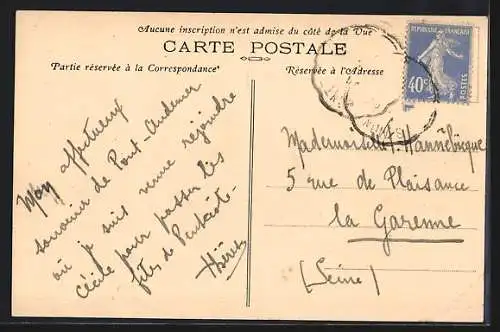 Aucune inscription n'est admise du côté de la Vue
CARTE POSTALE
Partie réservée à la Correspondance
Réservée à l'Adresse
RÉPUBLIQUE FRANÇAISE
40c
POSTES
Mon affectueux
souvenir de Pont-Audemer
où je suis venue rejoindre
Cécile pour passer les
fêtes de Pentecôte
Mademoiselle Hannebicque
5 rue de Plaisance
la Garenne
(Seine)